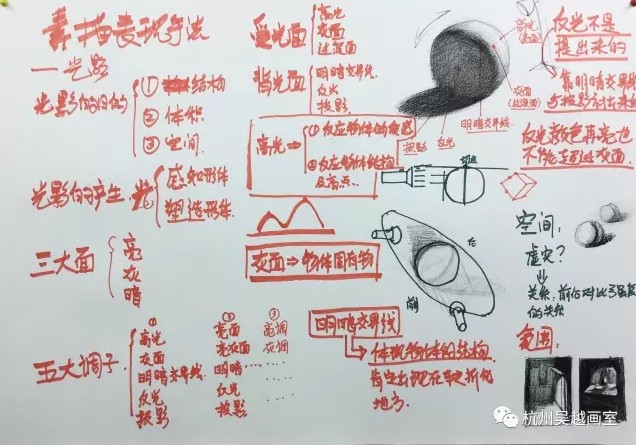 素描表现手法
—光影
光影的目的
① 结构
② 体积
③ 空间.
光影的产生.光
感知形体
塑造形体.
三大面
亮
灰
暗
五大调子
①
高光
灰面
明暗交界线.
反光
投影
②
亮面
亮灰面
明暗……
反光
投影
③
亮调
灰调
受光面
高光
亮面
过渡面
背光面
明暗交界线.
反光
投影
高光⇒
①反应物体的质感
②反应物体结构
及高点.
灰面⇒物体固有物
明暗交界线
体现物体的结构
肯定出现在转折的
地方.
高光
灰面
(过渡面)
明暗交界线.
反光
投影
切点
后
前
反光不是
提出来的
靠明暗交界线
与投影衬出来的
反光颜色再亮也
不能超过灰面
空间:
虚实?
⇓
关系,前后对比了强弱
的关系
氛围:
杭州吴越画室